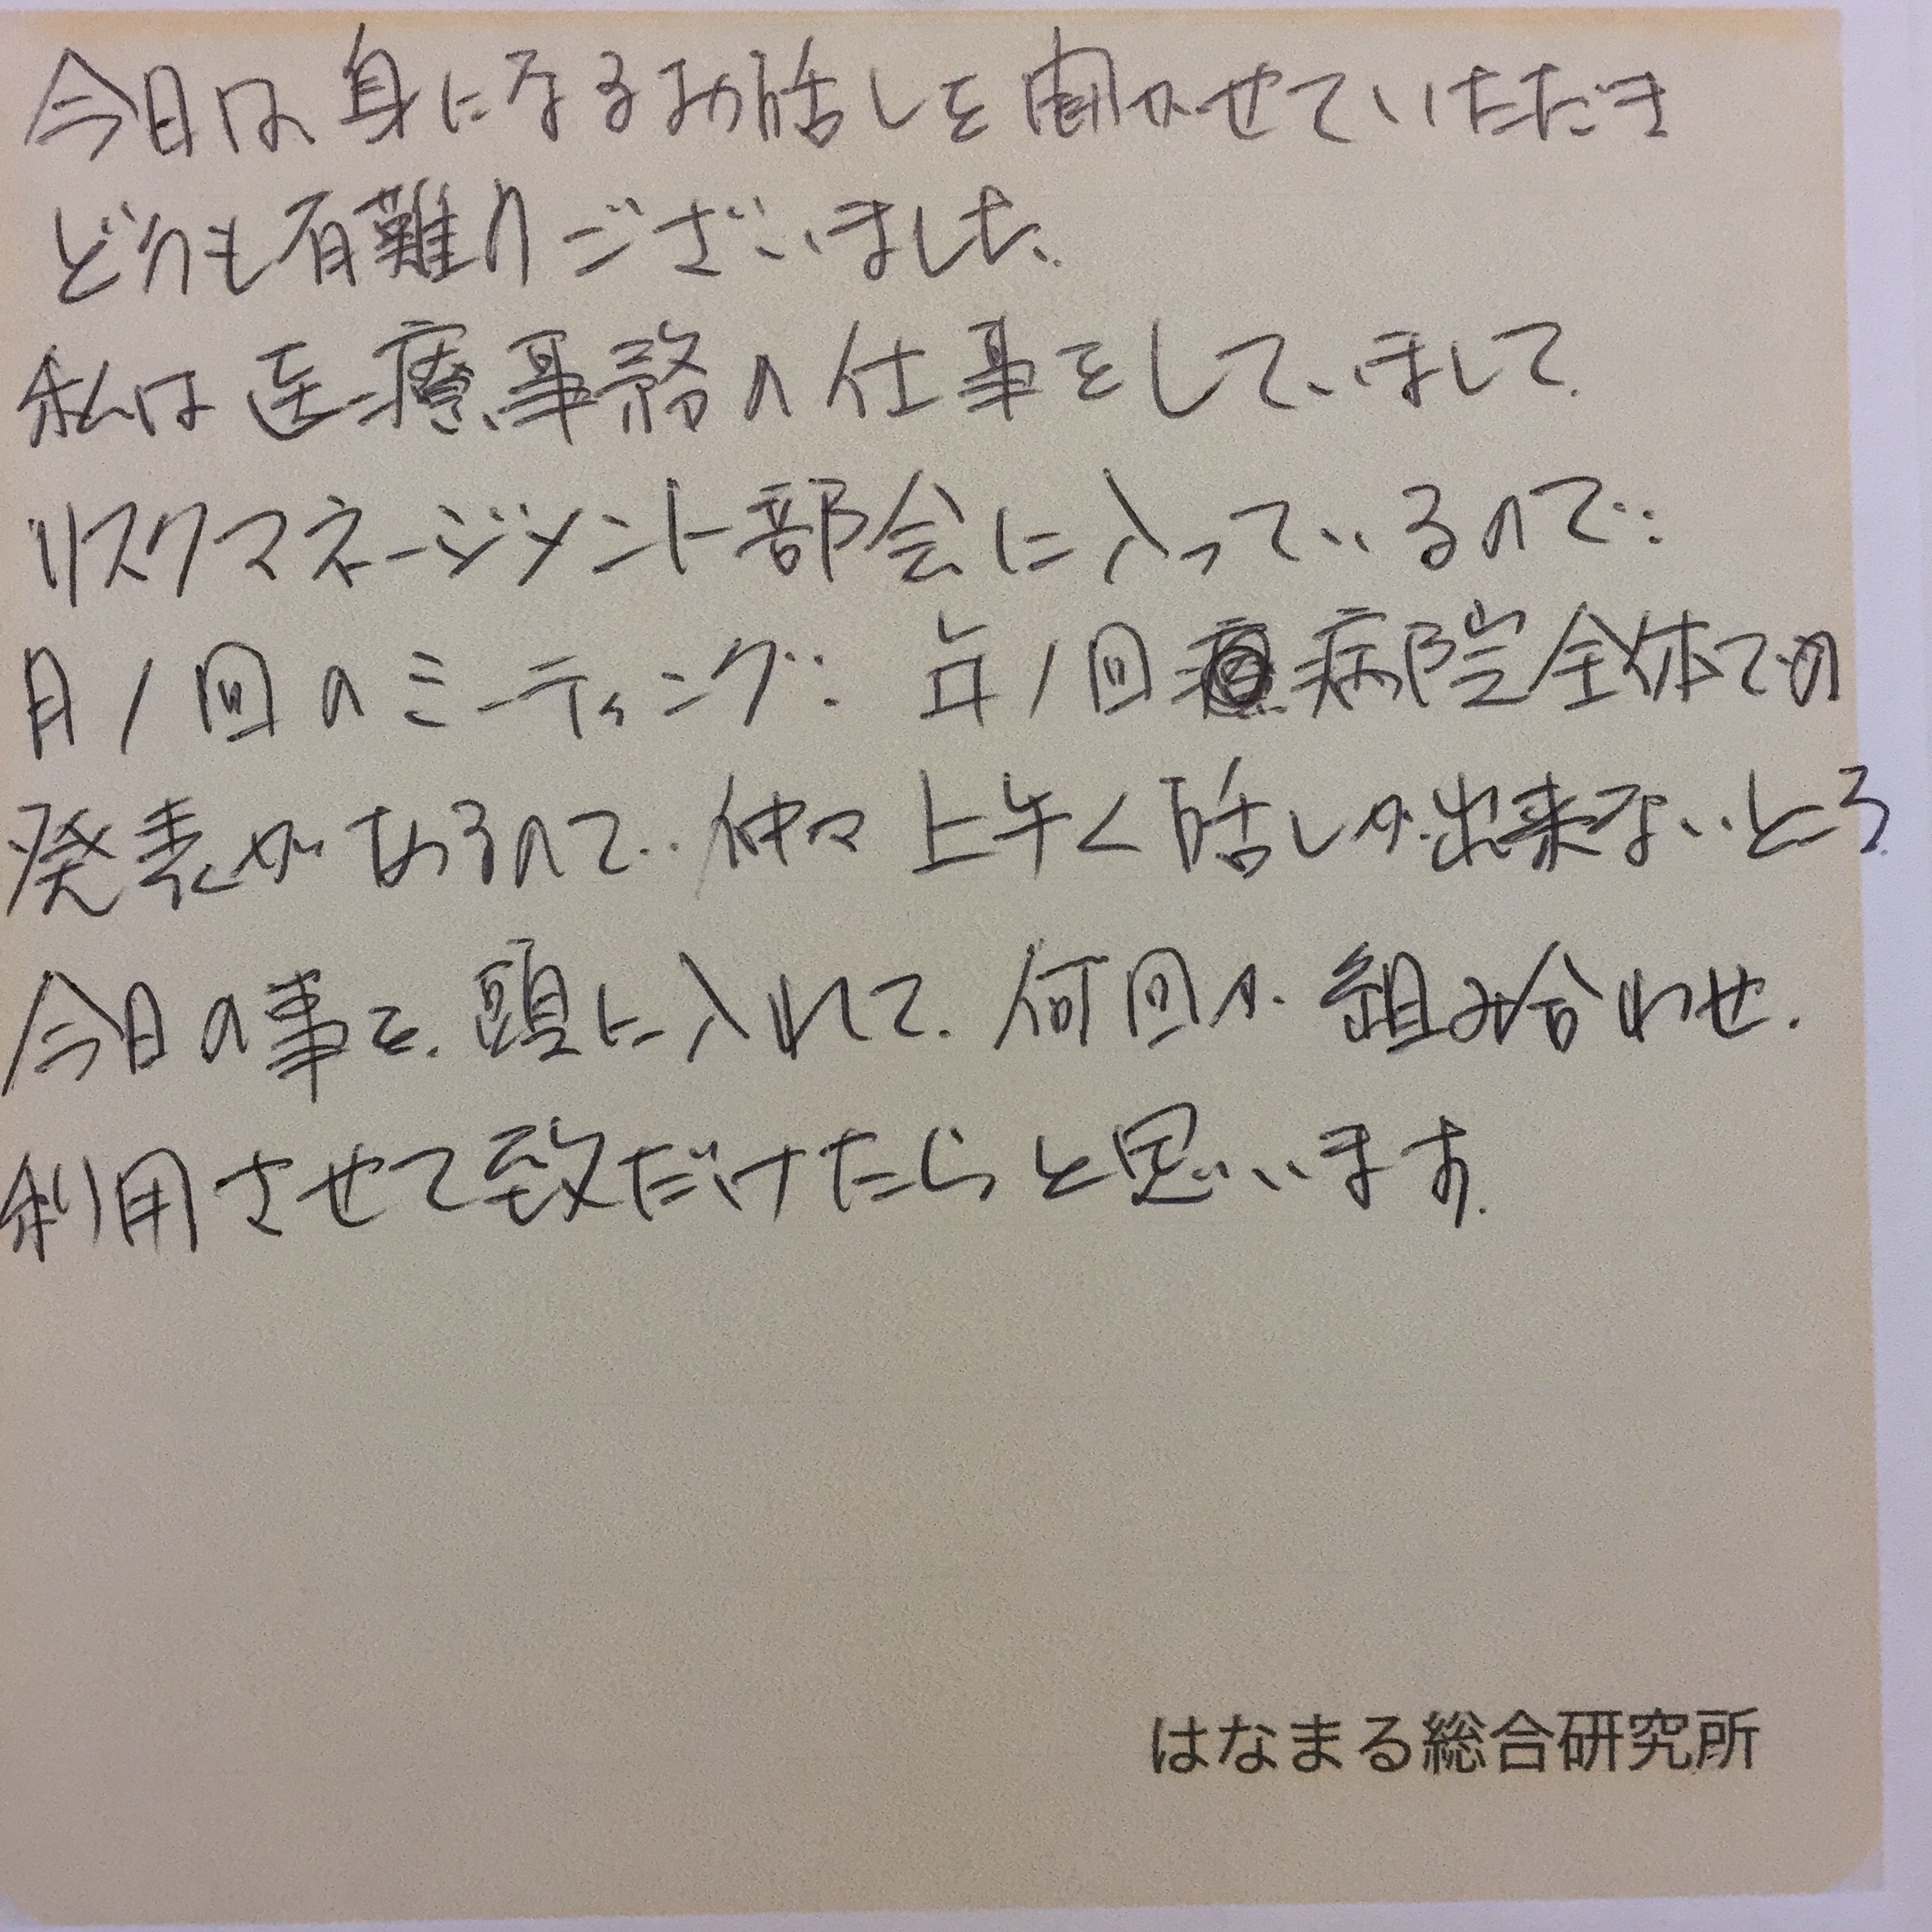 今日は、身になるお話しを聞かせていただき
どうも有難りございました、
私は医療事務の仕事をしていまして、
リスクマネージメント部会に入っているので、
月1回のミーティング、年1回病院全体での
発表があるので、仲々上手く話しが出来ないところ、
今日の事を、頭に入れて、何回か組み合わせ、
利用させて致だけたらと思います。
はなまる総合研究所